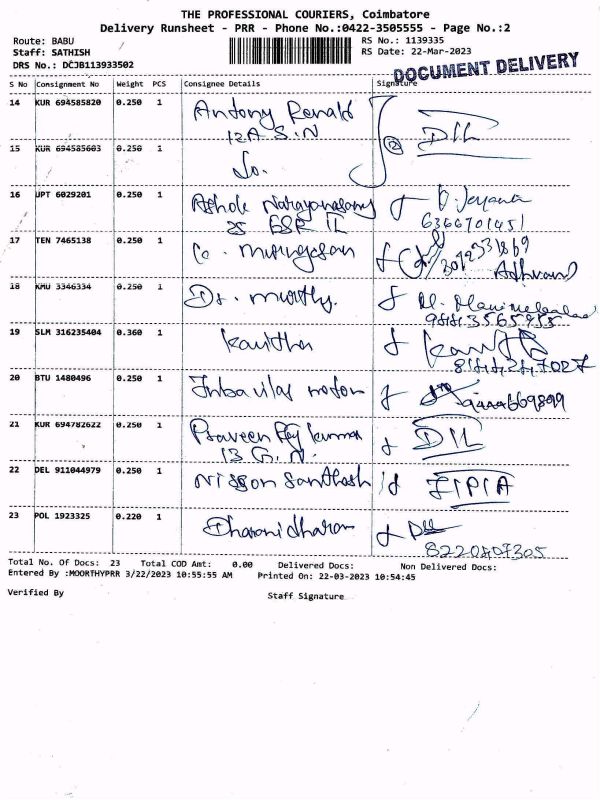 THE PROFESSIONAL COURIERS, Coimbatore
Delivery Runsheet - PRR - Phone No.:0422-3505555 - Page No.:2
Route: BABU
RS No.: 1139335
Staff: SATHISH
RS Date: 22-Mar-2023
DRS No.: DCJB113933502
DOCUMENT DELIVERY
S No Consignment No Weight PCS Consignee Details Signature
14 KUR 694585820 0.250 1 Antony Ronald
12A S.N
15 KUR 694585603 0.250 1 Do.
16 UPT 6029201 0.250 1 Ashok Narayanasamy
25 GSR
6366701451
17 TEN 7465138 0.250 1 Co. Murugesan
18 KMU 3346334 0.250 1 Dr. Murthy.
19 SLM 316235404 0.360 1 Kavitha
20 BTU 1480496 0.250 1 motor
21 KUR 694782622 0.250 1 Praveen Raj Kumar
13 G.N.
22 DEL 911044979 0.250 1 Nisson Santhosh
23 POL 1923325 0.220 1 Dharanidharan
8220407305
Total No. Of Docs: 23 Total COD Amt: 0.00 Delivered Docs: Non Delivered Docs:
Entered By :MOORTHYPRR 3/22/2023 10:55:55 AM Printed On: 22-03-2023 10:54:45
Verified By
Staff Signature